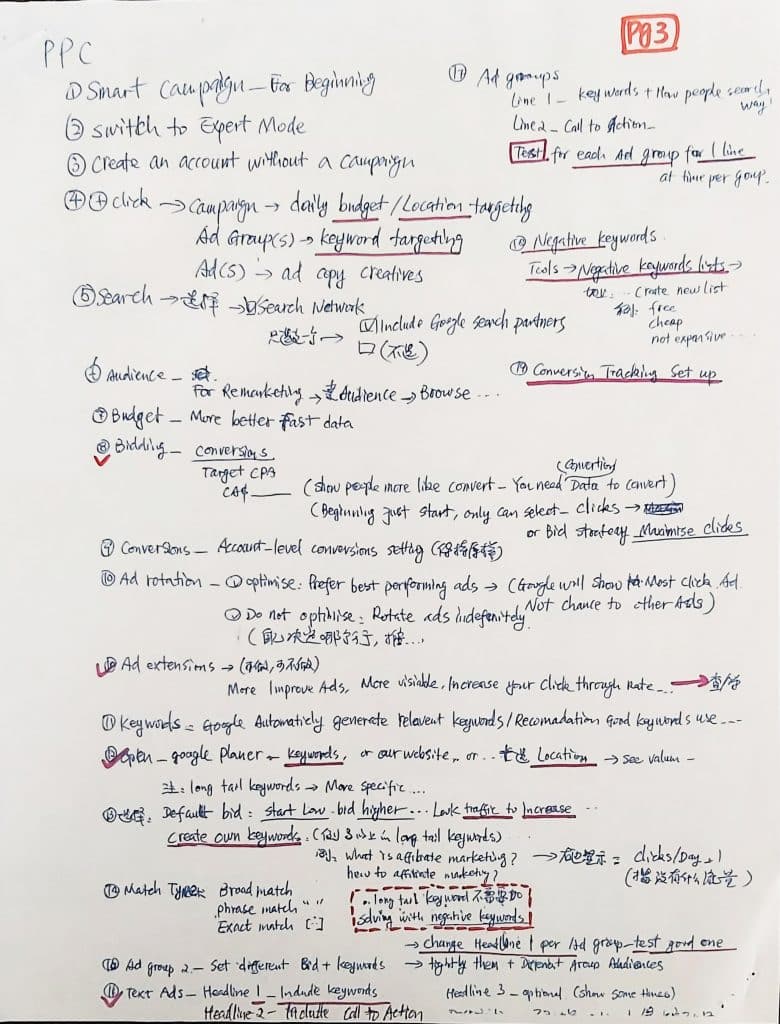 Pg3
PPC
① Smart Campaign — For Beginning
② Switch to Expert Mode
③ Create an account without a campaign
④ ⊕ click → Campaign → daily budget / Location targeting
Ad Group(s) → keyword targeting
Ad(s) → ad copy creatives
⑤ Search → 选择 → ☑ Search Network
☑ Include Google search partners
☐ (不选)
Audience —
For Remarketing → Audience → Browse ...
⑦ Budget — More better Fast data
⑧ Bidding — Conversions
Target CPA
(show people more like convert — You need (Convertion) Data to convert)
(Beginning just start, only can select — clicks →
or Bid strategy Maximise clicks
⑨ Conversions — Account-level conversions setting
⑩ Ad rotation — ① optimise: Prefer best performing ads → (Google will show Most click Ad.
Not chance to other Ads)
② Do not optimise: Rotate ads indefinitely
Ad extensions →
More Improve Ads, More visiable, Increase your click through Rate... →
⑪ Keywords = Google Automaticly generate relavent keywords / Recomadation Good keywords use ---
⑫ Open — google planer — keywords, or our website,.. or .. Location → see valum -
注: long tail keywords → More specific ...
⑬ 选择: Default bid: start Low. bid higher ... Lack traffic to Increase ..
Create own keywords.
例: What is affibrate marketing?
how to affibrate marketing?
= clicks/Day
⑭ Match Types Broad match
phrase match " "
Exact match [ ]
long tail keyword 不需要加
solving with negative keywords
→ change Headline 1 per Ad group — test good one
Ad group 2 — Set different Bid + keywords → tightly them + Different Group Audiences
⑯ Text Ads — Headline 1 — Include keywords
Headline 3 — optional (show some times)
Headline 2 — Include Call to Action
⑰ Ad groups
Line 1 — keywords + How people search way!
Line 2 — Call to Action —
Test for each Ad group for 1 line
at time per goup.
⑱ Negative keywords
Tools → Negative keywords lists →
Create new list
例: free
cheap
not expensive ....
⑲ Conversion Tracking Set up